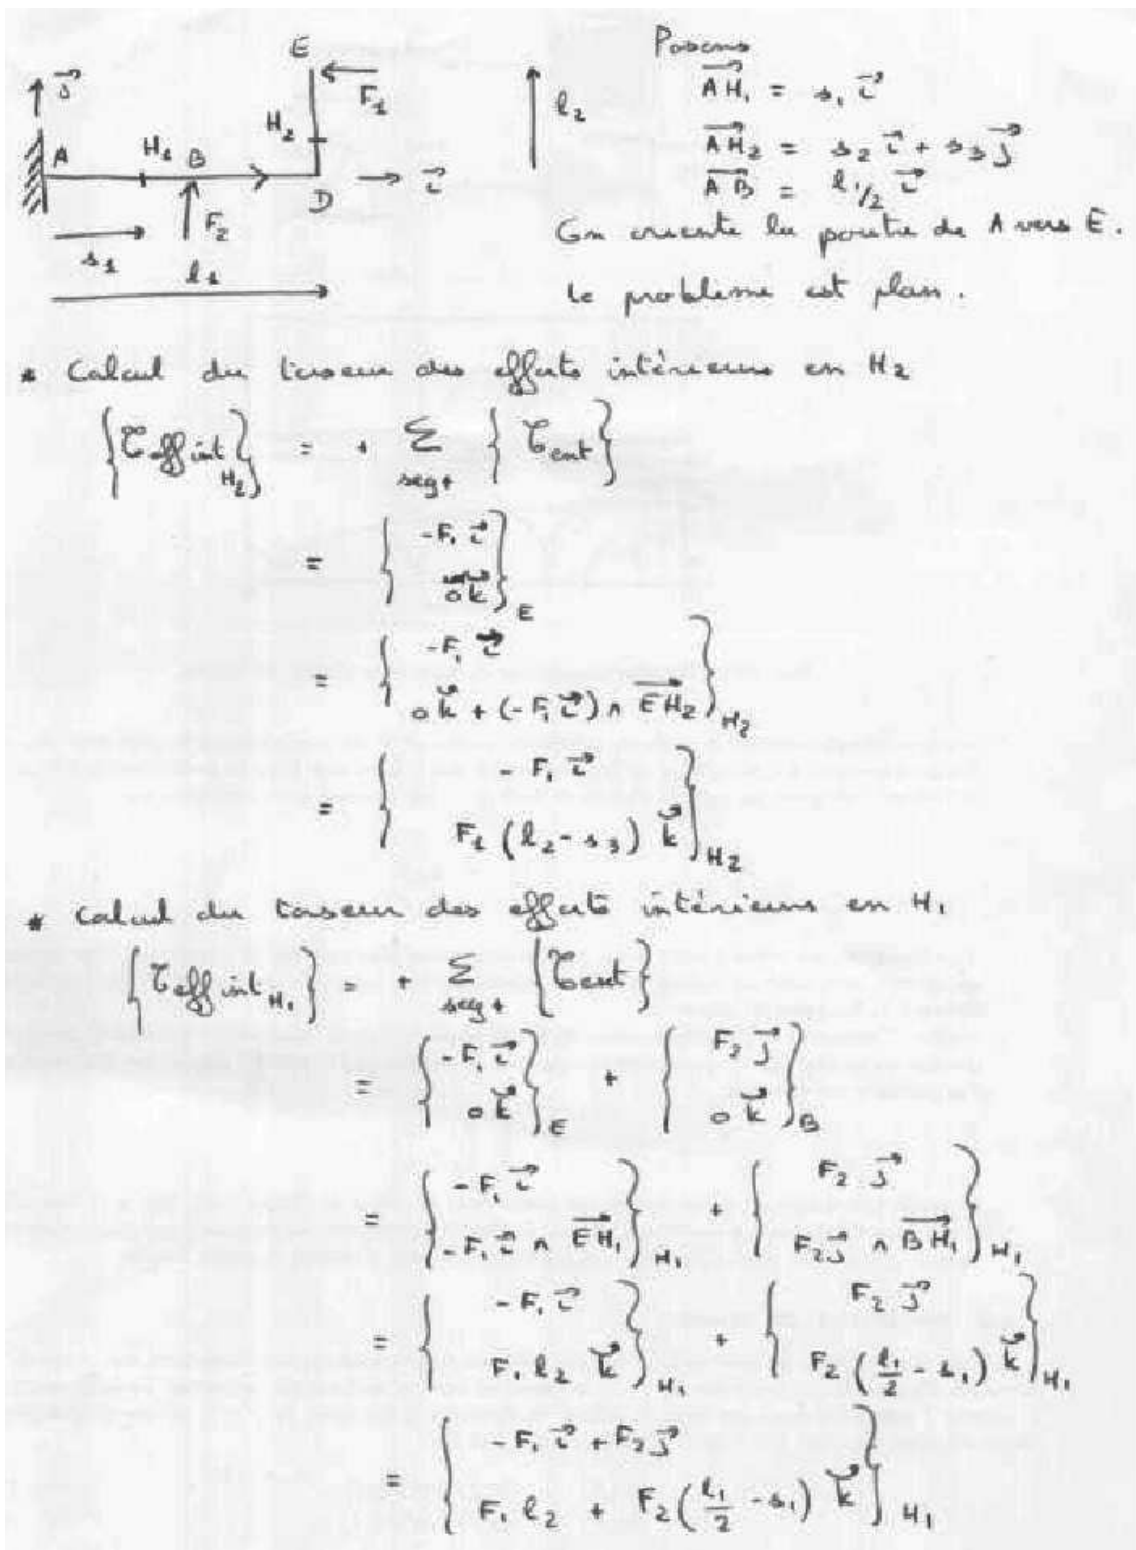 E
j⃗
F₁
H₂
A H₁ B
D i⃗
F₂
s₁
l₁
l₂
Posons
AH₁⃗ = s₁ i⃗
AH₂⃗ = s₂ i⃗ + s₃ j⃗
AB⃗ = l₁/₂ i⃗
On oriente la poutre de A vers E.
Le problème est plan.
* Calcul du torseur des efforts intérieurs en H₂
{𝒯eff int H₂} = + Σ seg+ {𝒯ext}
= {-F₁ i⃗ ; 0 k⃗}E
= {-F₁ i⃗ ; 0 k⃗ + (-F₁ i⃗) ∧ EH₂⃗}H₂
= {-F₁ i⃗ ; F₁ (l₂ - s₃) k⃗}H₂
* Calcul du torseur des efforts intérieurs en H₁
{𝒯eff int H₁} = + Σ seg+ {𝒯ext}
= {-F₁ i⃗ ; 0 k⃗}E + {F₂ j⃗ ; 0 k⃗}B
= {-F₁ i⃗ ; -F₁ i⃗ ∧ EH₁⃗}H₁ + {F₂ j⃗ ; F₂ j⃗ ∧ BH₁⃗}H₁
= {-F₁ i⃗ ; F₁ l₂ k⃗}H₁ + {F₂ j⃗ ; F₂ (l₁/2 - s₁) k⃗}H₁
= {-F₁ i⃗ + F₂ j⃗ ; F₁ l₂ + F₂ (l₁/2 - s₁) k⃗}H₁